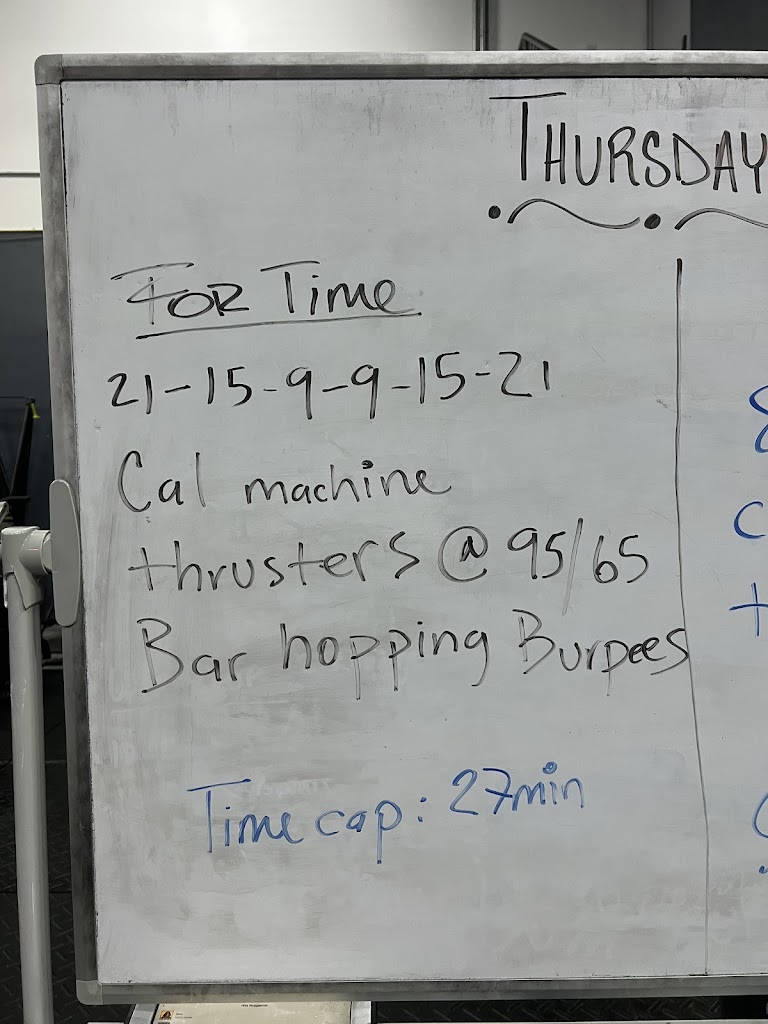 THURSDAY
FOR Time
21-15-9-9-15-21
Cal machine
thrusters @ 95/65
Bar hopping Burpees
Time cap: 27min